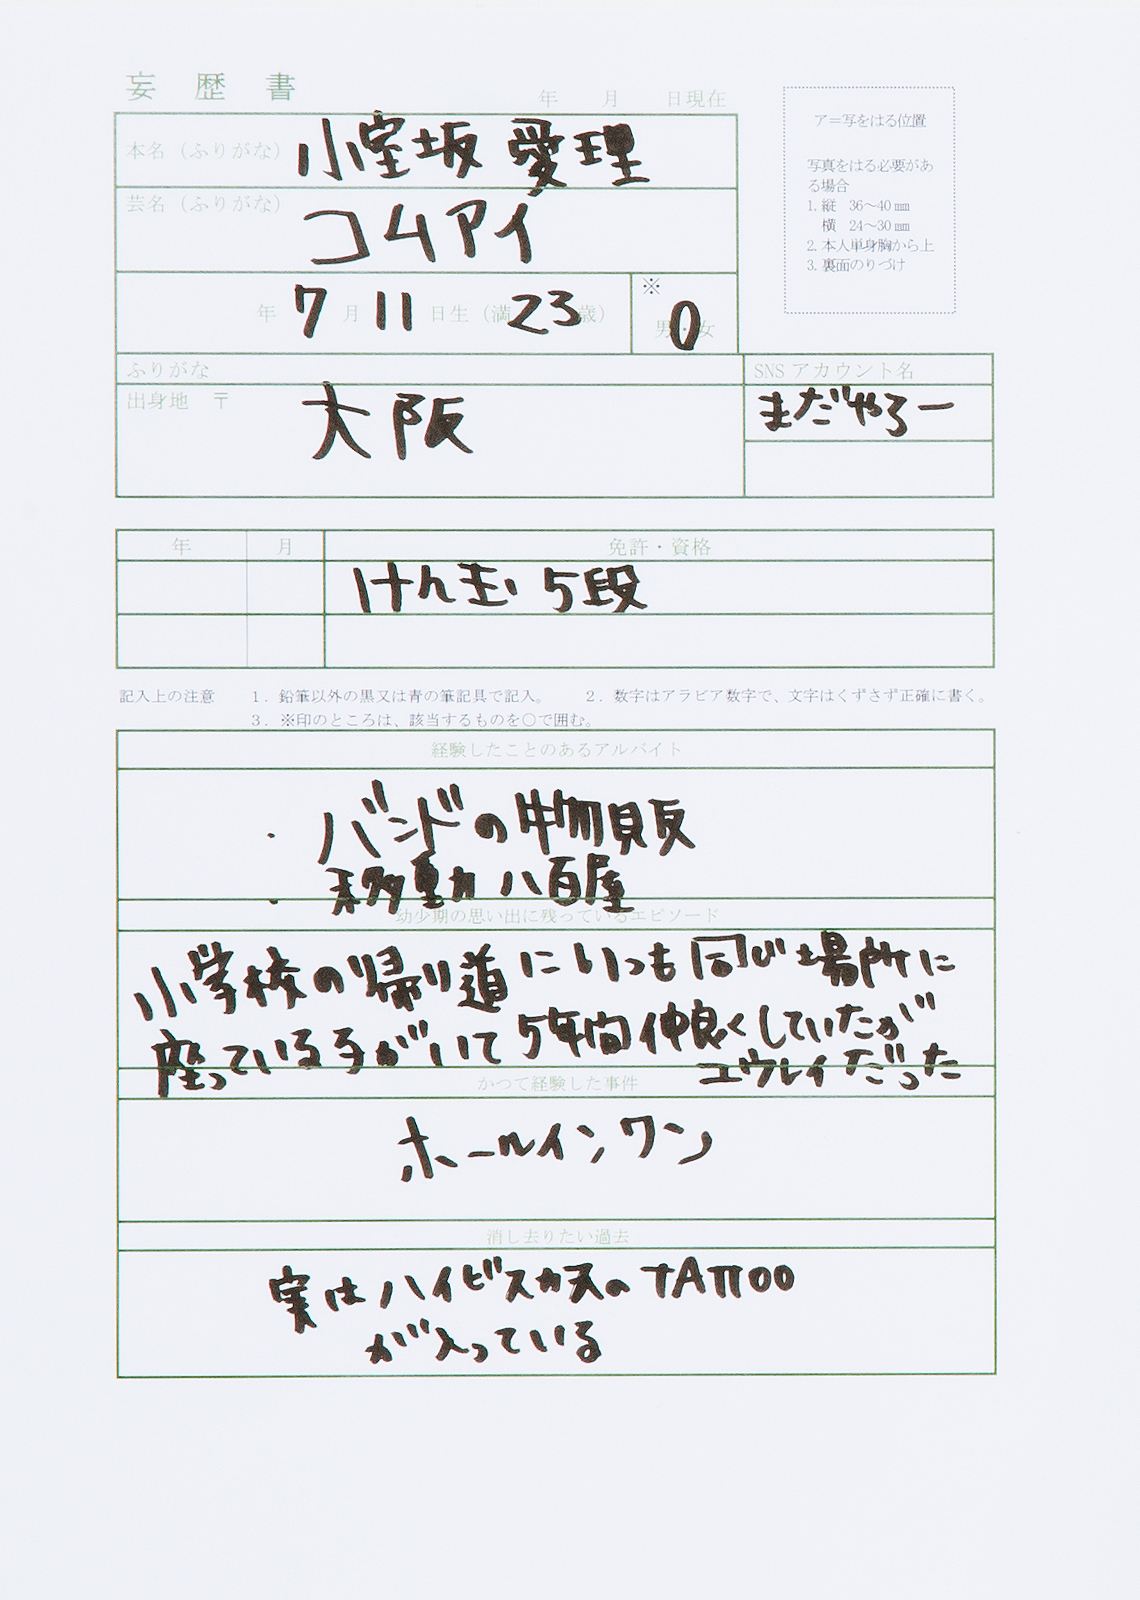 妄歴書
年 月 日現在
本名（ふりがな） 小室坂 愛理
芸名（ふりがな） コムアイ
年 7 月 11 日生（満 23 歳）
※
男・女 0
ア＝写をはる位置
写真をはる必要があ
る場合
1. 縦 36～40㎜
横 24～30㎜
2. 本人単身胸から上
3. 裏面のりづけ
ふりがな
出身地 〒 大阪
SNS アカウント名
まだやろー
年 月 免許・資格
けん玉 5段
記入上の注意 1．鉛筆以外の黒又は青の筆記具で記入。 2．数字はアラビア数字で、文字はくずさず正確に書く。
3．※印のところは、該当するものを○で囲む。
経験したことのあるアルバイト
・バンドの物販
・移動八百屋
幼少期の思い出に残っているエピソード
小学校の帰り道にいつも同じ場所に
座っている子がいて5年間仲良くしていたが
ユウレイだった
かつて経験した事件
ホールインワン
消し去りたい過去
実はハイビスカスのTATTOO
が入っている